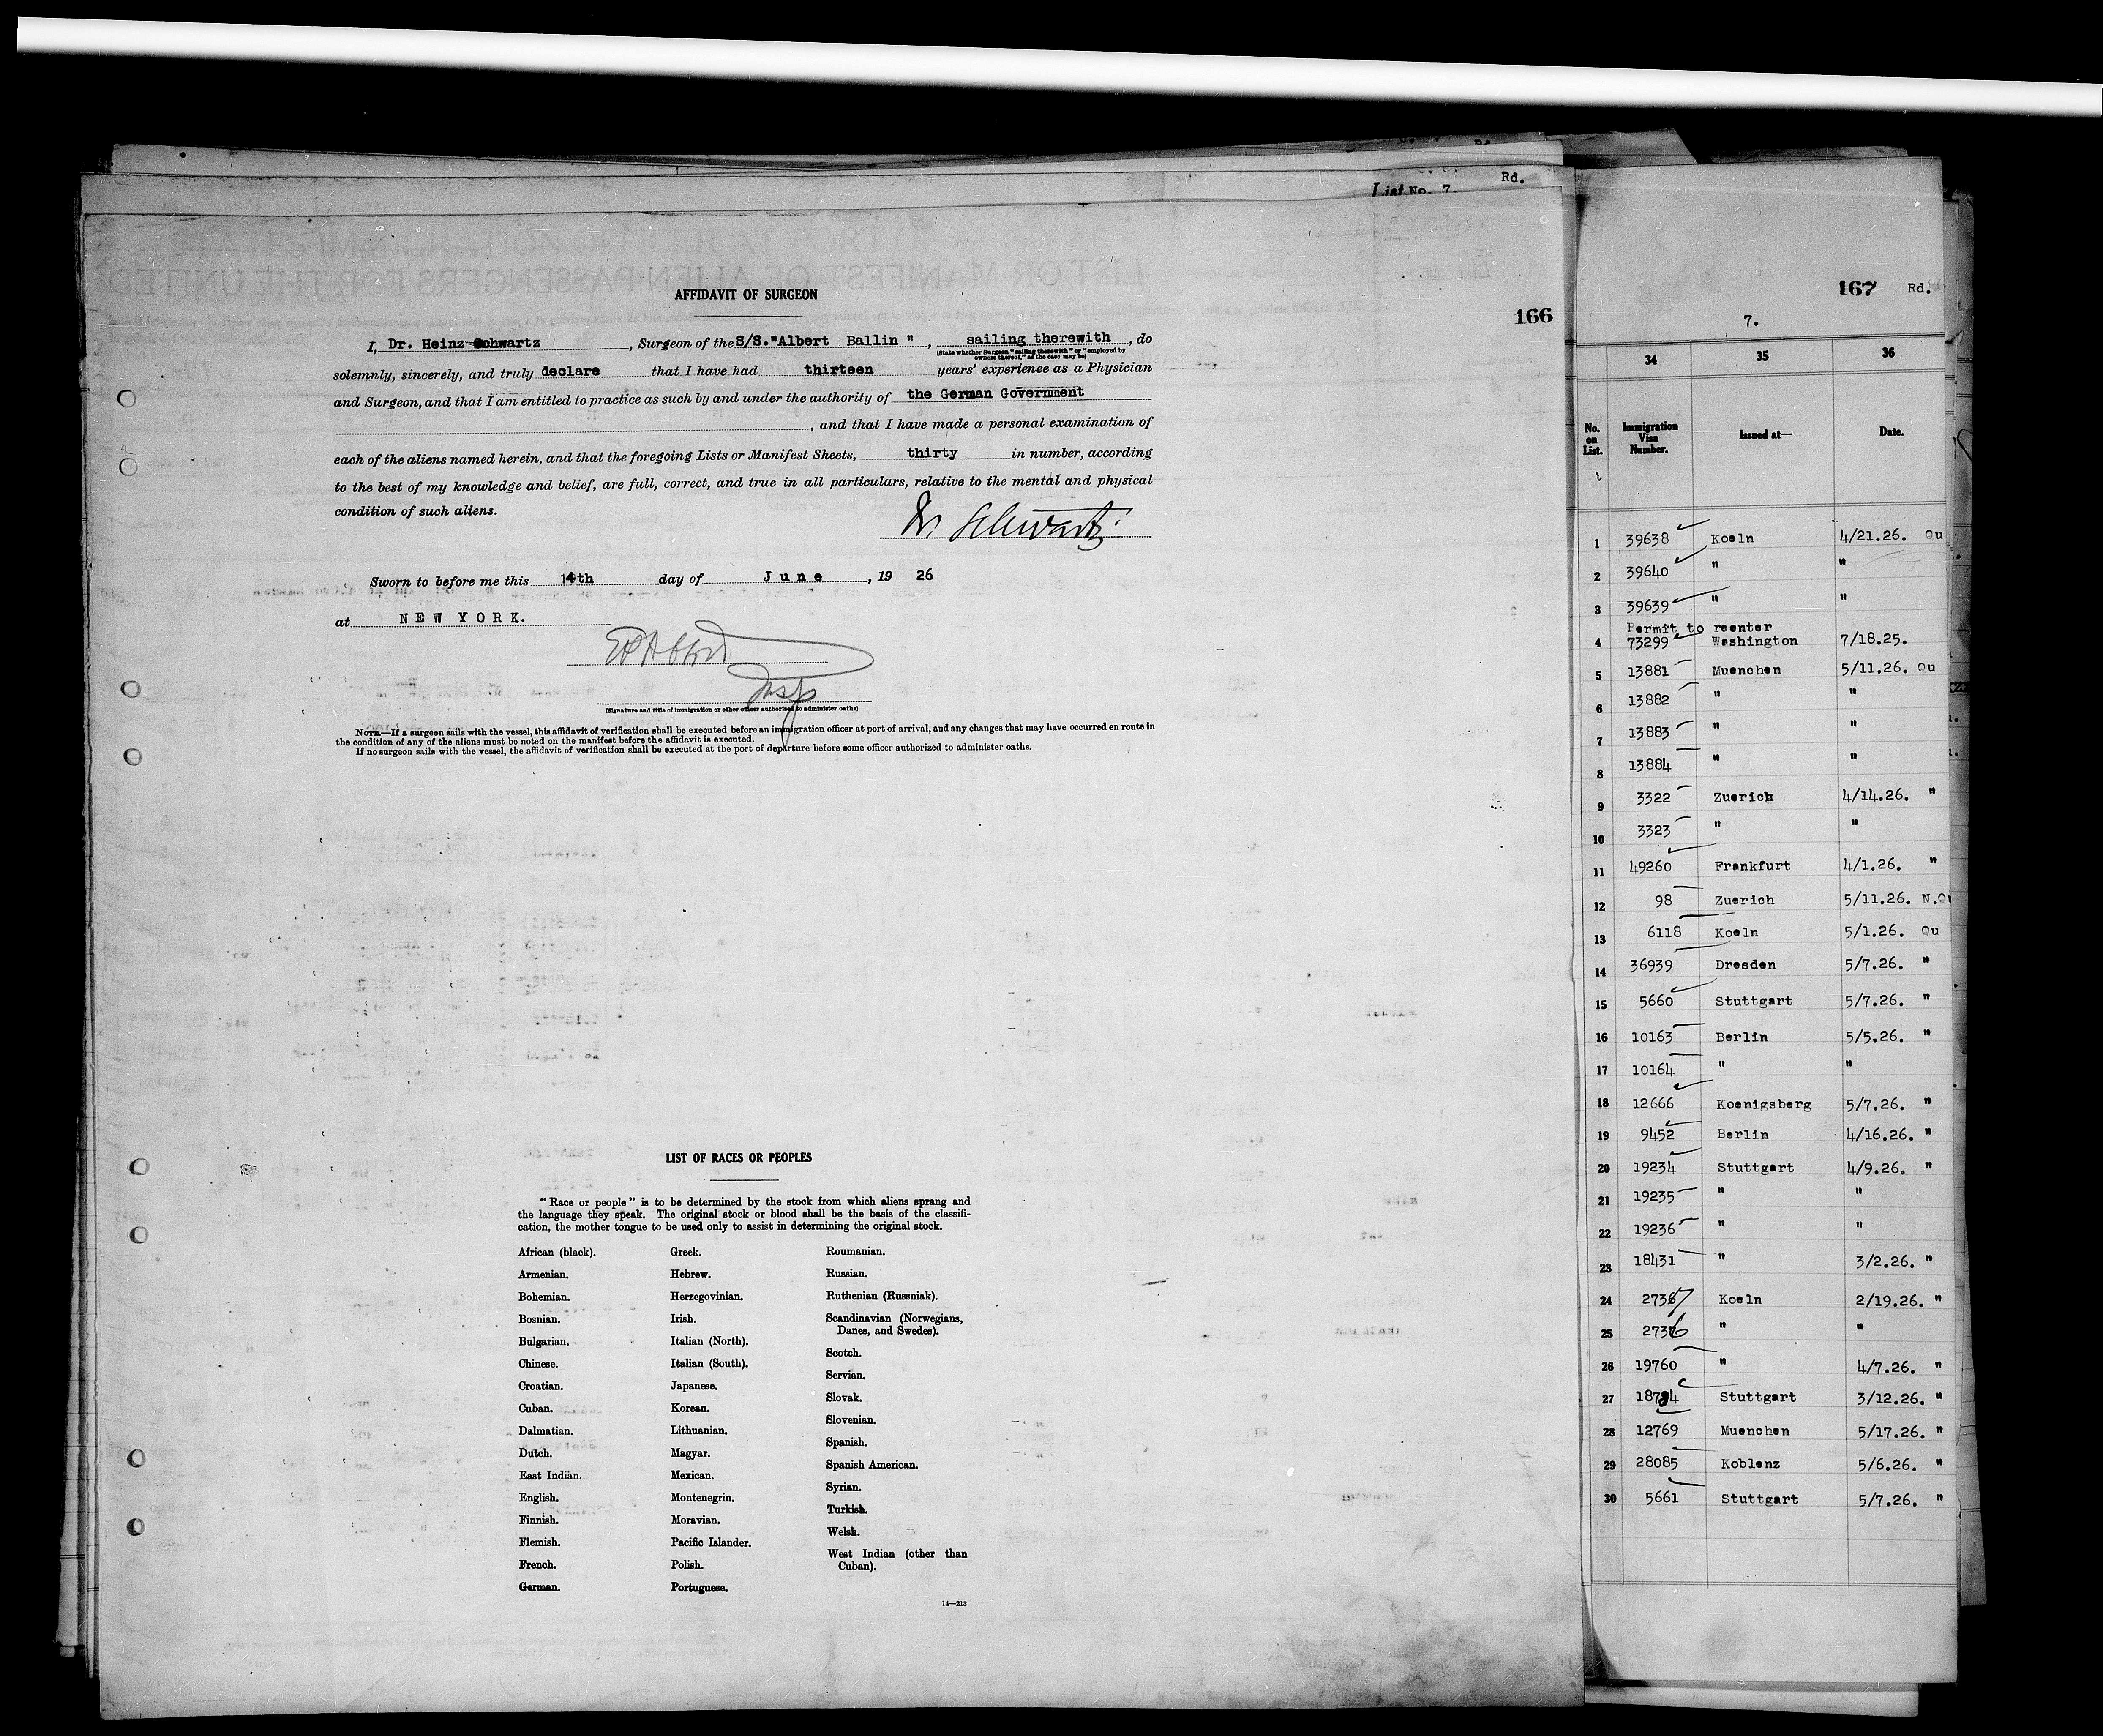 List No. 7. Rd.
AFFIDAVIT OF SURGEON
166
I, Dr. Heinz Schwartz, Surgeon of the S/S."Albert Ballin ", sailing therewith, do
(State whether Surgeon "sailing therewith" or "employed by
owners thereof," as the case may be)
solemnly, sincerely, and truly declare that I have had thirteen years' experience as a Physician
and Surgeon, and that I am entitled to practice as such by and under the authority of the German Government
, and that I have made a personal examination of
each of the aliens named herein, and that the foregoing Lists or Manifest Sheets, thirty in number, according
to the best of my knowledge and belief, are full, correct, and true in all particulars, relative to the mental and physical
condition of such aliens.
Dr. Schwartz
Sworn to before me this 14th day of June, 19 26
at NEW YORK.
Insp
(Signature and title of immigration or other officer authorized to administer oaths)
NOTE.—If a surgeon sails with the vessel, this affidavit of verification shall be executed before an immigration officer at port of arrival, and any changes that may have occurred en route in
the condition of any of the aliens must be noted on the manifest before the affidavit is executed.
If no surgeon sails with the vessel, the affidavit of verification shall be executed at the port of departure before some officer authorized to administer oaths.
LIST OF RACES OR PEOPLES
"Race or people" is to be determined by the stock from which aliens sprang and
the language they speak. The original stock or blood shall be the basis of the classifi-
cation, the mother tongue to be used only to assist in determining the original stock.
African (black).
Armenian.
Bohemian.
Bosnian.
Bulgarian.
Chinese.
Croatian.
Cuban.
Dalmatian.
Dutch.
East Indian.
English.
Finnish.
Flemish.
French.
German.
Greek.
Hebrew.
Herzegovinian.
Irish.
Italian (North).
Italian (South).
Japanese.
Korean.
Lithuanian.
Magyar.
Mexican.
Montenegrin.
Moravian.
Pacific Islander.
Polish.
Portuguese.
Roumanian.
Russian.
Ruthenian (Russniak).
Scandinavian (Norwegians,
Danes, and Swedes).
Scotch.
Servian.
Slovak.
Slovenian.
Spanish.
Spanish American.
Syrian.
Turkish.
Welsh.
West Indian (other than
Cuban).
14—213
167 Rd.
7.
34 35 36
No. on List. Immigration Visa Number. Issued at— Date.
1 39638 Koeln 4/21.26. Qu
2 39640 " "
3 39639 " "
Permit to reenter
4 73299 Washington 7/18.25.
5 13881 Muenchen 5/11.26. Qu
6 13882 " "
7 13883 " "
8 13884 " "
9 3322 Zuerich 4/14.26. "
10 3323 " "
11 49260 Frankfurt 4/1.26. "
12 98 Zuerich 5/11.26. N.Qu
13 6118 Koeln 5/1.26. Qu
14 36939 Dresden 5/7.26. "
15 5660 Stuttgart 5/7.26. "
16 10163 Berlin 5/5.26. "
17 10164 " "
18 12666 Koenigsberg 5/7.26. "
19 9452 Berlin 4/16.26. "
20 19234 Stuttgart 4/9.26. "
21 19235 " "
22 19236 " "
23 18431 " 3/2.26. "
24 2737 Koeln 2/19.26. "
25 2736 " "
26 19760 " 4/7.26. "
27 Stuttgart 3/12.26. "
28 12769 Muenchen 5/17.26. "
29 28085 Koblenz 5/6.26. "
30 5661 Stuttgart 5/7.26. "